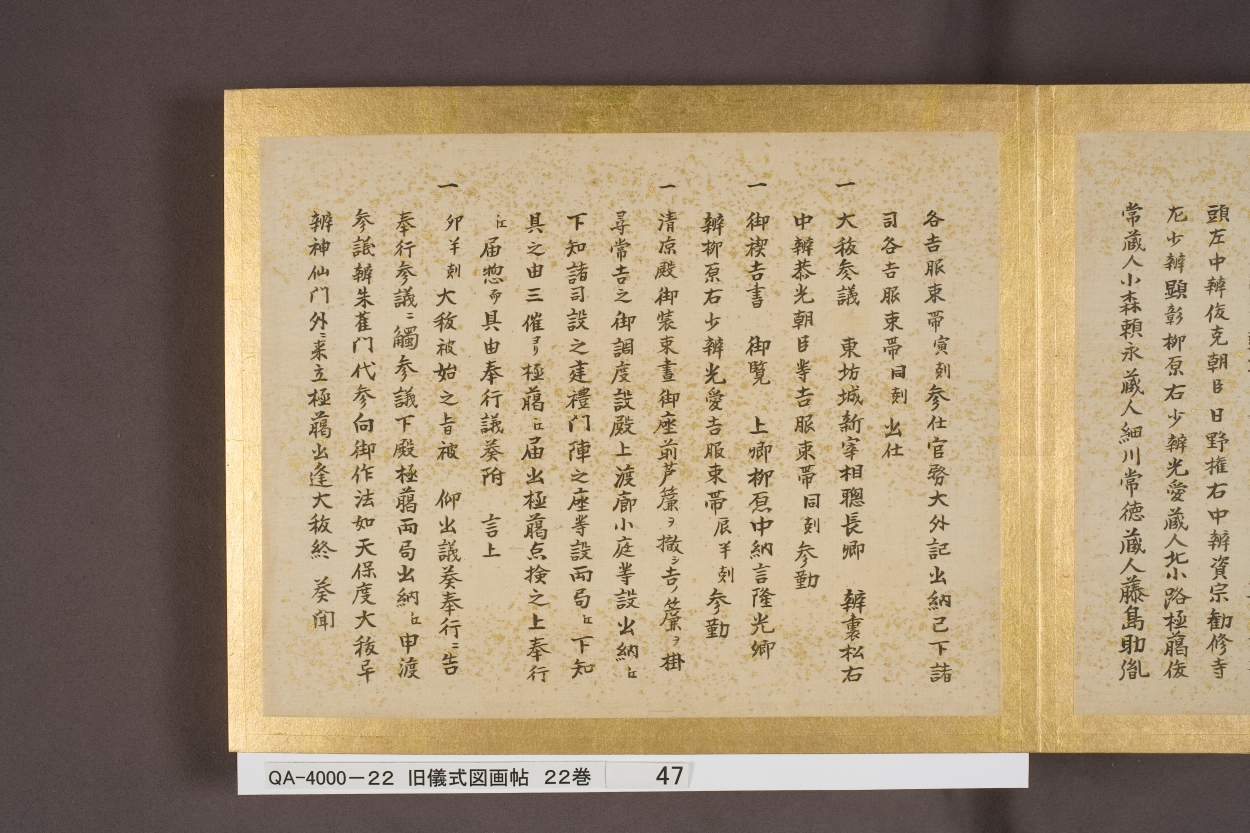 頭左中辨俊克朝臣日野権右中辨資宗勧修寺
左少辨顕彰柳原右少辨光愛蔵人北小路極﨟俊
常蔵人小森頼永蔵人細川常徳蔵人藤島助胤
各吉服束帯寅刻参仕官務大外記出納已下諸
司各吉服束帯同刻出仕
一 大秡参議 東坊城新宰相聰長卿 辨裏松右
中辨恭光朝臣等吉服束帯同刻参勤
一 御禊吉書 御覧 上卿柳原中納言隆光卿
辨柳原右少辨光愛吉服束帯辰半刻参勤
一 清凉殿御装束晝御座前芦簾ヲ撤シ吉ノ簾ヲ掛
尋常吉之御調度設殿上渡廊小庭等設出納江
下知諸司設之建禮門陣之座等設両局江下知
具之由三催ヨリ極﨟江届出極﨟点検之上奉行
江届惣而具由奉行議奏附 言上
一 卯半刻大秡被始之旨被 仰出議奏奉行ニ告
奉行参議ニ觸参議下殿極﨟両局出納江申渡
参議辨朱雀門代参向御作法如天保度大秡早
辨神仙門外ニ来立極﨟出逢大秡終 奏聞
QA-4000-22 旧儀式図画帖 22巻 47